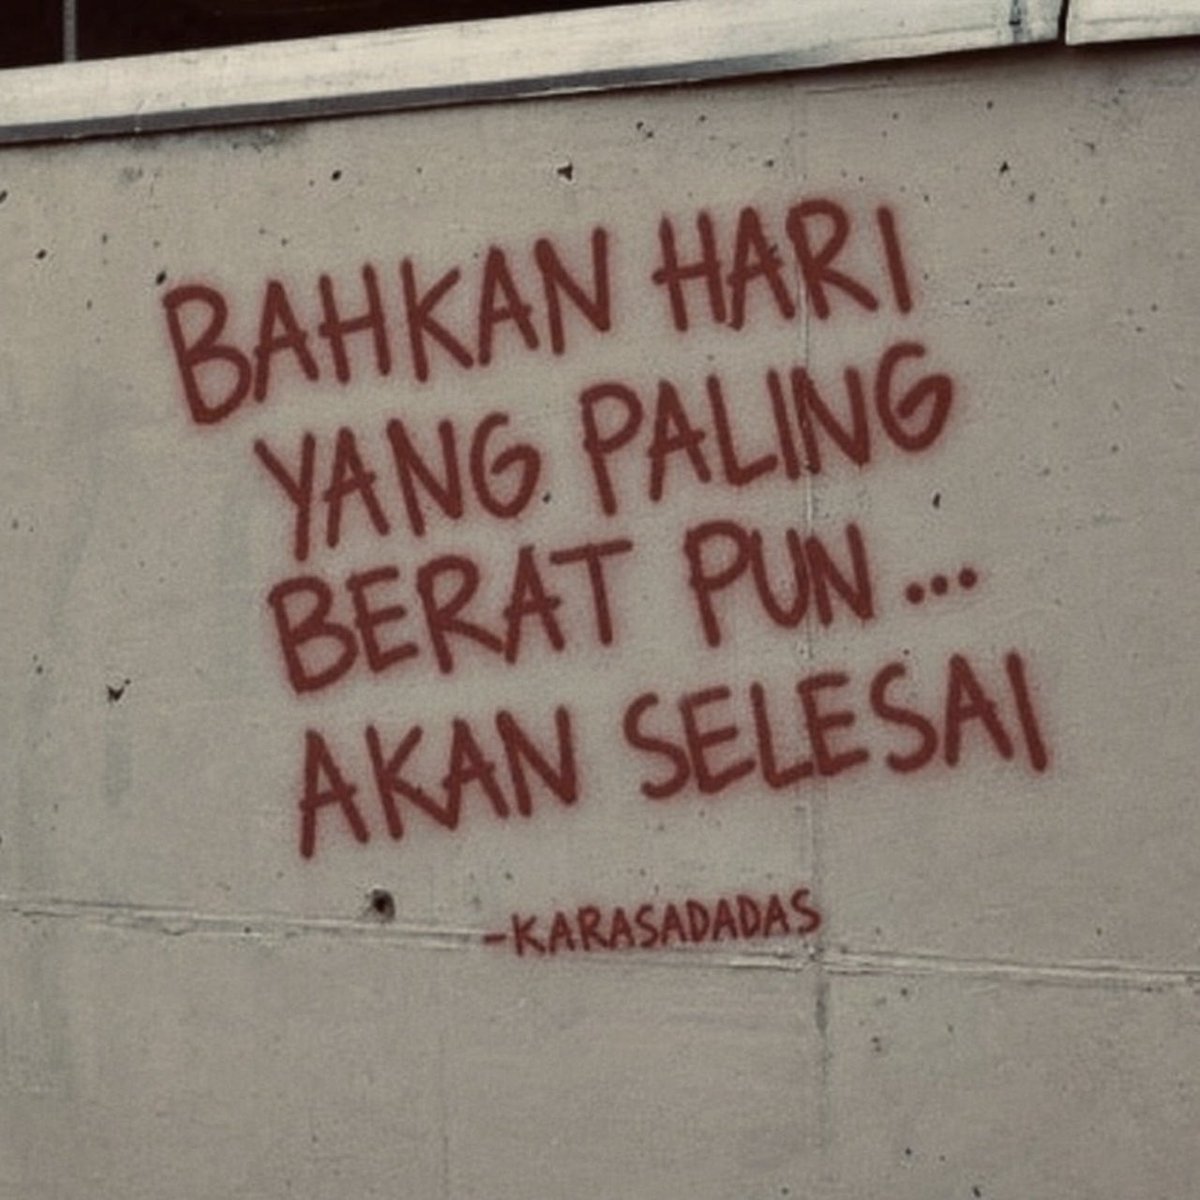 BAHKAN HARI
YANG PALING
BERAT PUN...
AKAN SELESAI
-KARASADADAS